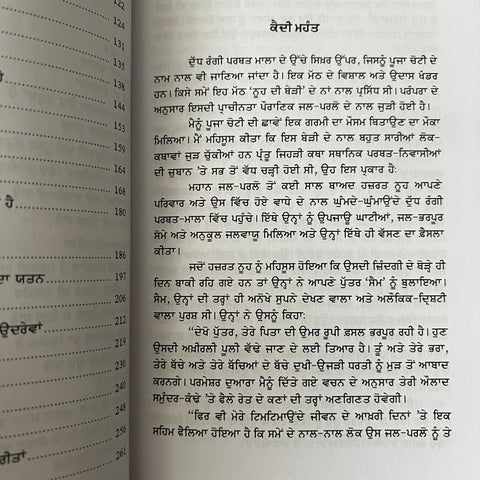 122
124
131
135
138
144
159
164
168
ਹੈ 180
186
ਦਾ ਯਤਨ 197
206
ਉਦਰੇਵਾਂ 212
219
241
248
256
ਰੀਤਾਂ 261
ਕੈਦੀ ਮਹੰਤ
ਦੁੱਧ ਰੰਗੀ ਪਰਬਤ ਮਾਲਾ ਦੇ ਉੱਚੇ ਸਿਖ਼ਰ ਉੱਪਰ, ਜਿਸਨੂੰ ਪੂਜਾ ਚੋਟੀ ਦੇ
ਨਾਮ ਨਾਲ ਵੀ ਜਾਣਿਆ ਜਾਂਦਾ ਹੈ। ਇਕ ਮੱਠ ਦੇ ਵਿਸ਼ਾਲ ਅਤੇ ਉਦਾਸ ਖੰਡਰ
ਹਨ। ਕਿਸੇ ਸਮੇਂ ਇਹ ਮੱਠ 'ਨੂਹ ਦੀ ਬੇੜੀ' ਦੇ ਨਾਂ ਨਾਲ ਪ੍ਰਸਿੱਧ ਸੀ। ਪਰੰਪਰਾ ਦੇ
ਅਨੁਸਾਰ ਇਸਦੀ ਪ੍ਰਾਚੀਨਤਾ ਪੌਰਾਣਿਕ ਜਲ-ਪਰਲੋ ਦੇ ਨਾਲ ਜੁੜੀ ਹੋਈ ਹੈ।
ਮੈਨੂੰ ਪੂਜਾ ਚੋਟੀ ਦੀ ਛਾਵੇਂ ਇਕ ਗਰਮੀ ਦਾ ਮੌਸਮ ਬਿਤਾਉਣ ਦਾ ਮੌਕਾ
ਮਿਲਿਆ। ਮੈਂ ਮਹਿਸੂਸ ਕੀਤਾ ਕਿ ਇਸ ਬੇੜੀ ਦੇ ਨਾਲ ਬਹੁਤ ਸਾਰੀਆਂ ਲੋਕ-
ਕਥਾਵਾਂ ਜੁੜ ਚੁੱਕੀਆਂ ਹਨ ਪ੍ਰੰਤੂ ਜਿਹੜੀ ਕਥਾ ਸਥਾਨਿਕ ਪਰਬਤ-ਨਿਵਾਸੀਆਂ
ਦੀ ਜ਼ੁਬਾਨ 'ਤੇ ਸਭ ਤੋਂ ਵੱਧ ਚੜ੍ਹੀ ਹੋਈ ਸੀ, ਉਹ ਇਸ ਪ੍ਰਕਾਰ ਹੈ:
ਮਹਾਨ ਜਲ-ਪਰਲੋ ਤੋਂ ਕਈ ਸਾਲ ਬਾਅਦ ਹਜ਼ਰਤ ਨੂਹ ਆਪਣੇ
ਪਰਿਵਾਰ ਅਤੇ ਉਸ ਵਿੱਚ ਹੋਏ ਵਾਧੇ ਦੇ ਨਾਲ ਘੁੰਮਦੇ-ਘੁੰਮਾਉਂਦੇ ਦੁੱਧ ਰੰਗੀ
ਪਰਬਤ-ਮਾਲਾ ਵਿੱਚ ਪਹੁੰਚੇ। ਇੱਥੇ ਉਨ੍ਹਾਂ ਨੂੰ ਉਪਜਾਊ ਘਾਟੀਆਂ, ਜਲ-ਭਰਪੂਰ
ਸੋਮੇ ਅਤੇ ਅਨੁਕੂਲ ਜਲਵਾਯੂ ਮਿਲਿਆ ਅਤੇ ਉਨ੍ਹਾਂ ਇੱਥੇ ਹੀ ਵੱਸਣ ਦਾ ਫ਼ੈਸਲਾ
ਕੀਤਾ।
ਜਦੋਂ ਹਜ਼ਰਤ ਨੂਹ ਨੂੰ ਮਹਿਸੂਸ ਹੋਇਆ ਕਿ ਉਸਦੀ ਜ਼ਿੰਦਗੀ ਦੇ ਥੋੜ੍ਹੇ ਹੀ
ਦਿਨ ਬਾਕੀ ਰਹਿ ਗਏ ਹਨ ਤਾਂ ਉਨ੍ਹਾਂ ਨੇ ਆਪਣੇ ਪੁੱਤਰ 'ਸੈਮ' ਨੂੰ ਬੁਲਾਇਆ।
ਸੈਮ, ਉਨ੍ਹਾਂ ਦੀ ਤਰ੍ਹਾਂ ਹੀ ਅਨੋਖੇ ਸੁਪਨੇ ਦੇਖਣ ਵਾਲਾ ਅਤੇ ਅਲੌਕਿਕ-ਦ੍ਰਿਸ਼ਟੀ
ਵਾਲਾ ਪੁਰਸ਼ ਸੀ। ਉਨ੍ਹਾਂ ਨੇ ਉਸਨੂੰ ਕਿਹਾ:
"ਦੇਖੋ ਪੁੱਤਰ, ਤੇਰੇ ਪਿਤਾ ਦੀ ਉਮਰ ਰੂਪੀ ਫ਼ਸਲ ਭਰਪੂਰ ਰਹੀ ਹੈ। ਹੁਣ
ਉਸਦੀ ਅਖ਼ੀਰਲੀ ਪੂਲੀ ਵੱਢੇ ਜਾਣ ਦੇ ਲਈ ਤਿਆਰ ਹੈ। ਤੂੰ ਅਤੇ ਤੇਰੇ ਭਰਾ,
ਤੇਰੇ ਬੱਚੇ ਅਤੇ ਤੇਰੇ ਬੱਚਿਆਂ ਦੇ ਬੱਚੇ ਦੁਖੀ-ਉਜੜੀ ਧਰਤੀ ਨੂੰ ਮੁੜ ਤੋਂ ਆਬਾਦ
ਕਰਨਗੇ। ਪਰਮੇਸ਼ਰ ਦੁਆਰਾ ਮੈਨੂੰ ਦਿੱਤੇ ਗਏ ਵਚਨ ਦੇ ਅਨੁਸਾਰ ਤੇਰੀ ਔਲਾਦ
ਸਮੁੰਦਰ-ਕੰਢੇ 'ਤੇ ਫੈਲੇ ਰੇਤ ਦੇ ਕਣਾਂ ਦੀ ਤਰ੍ਹਾਂ ਅਣਗਿਣਤ ਹੋਵੇਗੀ।
"ਫਿਰ ਵੀ ਮੇਰੇ ਟਿਮਟਿਮਾਉਂਦੇ ਜੀਵਨ ਦੇ ਆਖ਼ਰੀ ਦਿਨਾਂ 'ਤੇ ਇਕ
ਸਹਿਮ ਫੈਲਿਆ ਹੋਇਆ ਹੈ ਕਿ ਸਮੇਂ ਦੇ ਨਾਲ-ਨਾਲ ਲੋਕ ਉਸ ਜਲ-ਪਰਲੋ ਨੂੰ ਤੇ